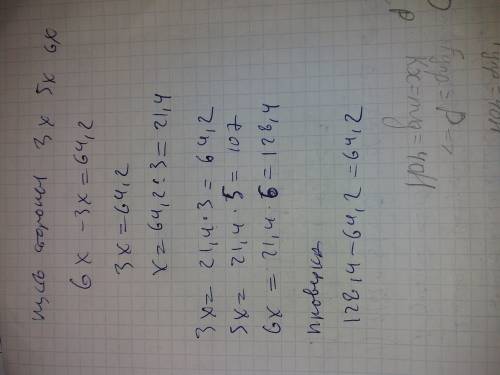 пусть стороны 3x 5x 6x
6x - 3x = 64,2
3x = 64,2
x = 64,2 : 3 = 21,4
3x = 21,4 · 3 = 64,2
5x = 21,4 · 5 = 107
6x = 21,4 · 6 = 128,4
проверка
128,4 - 64,2 = 64,2
kx = mg = 40H